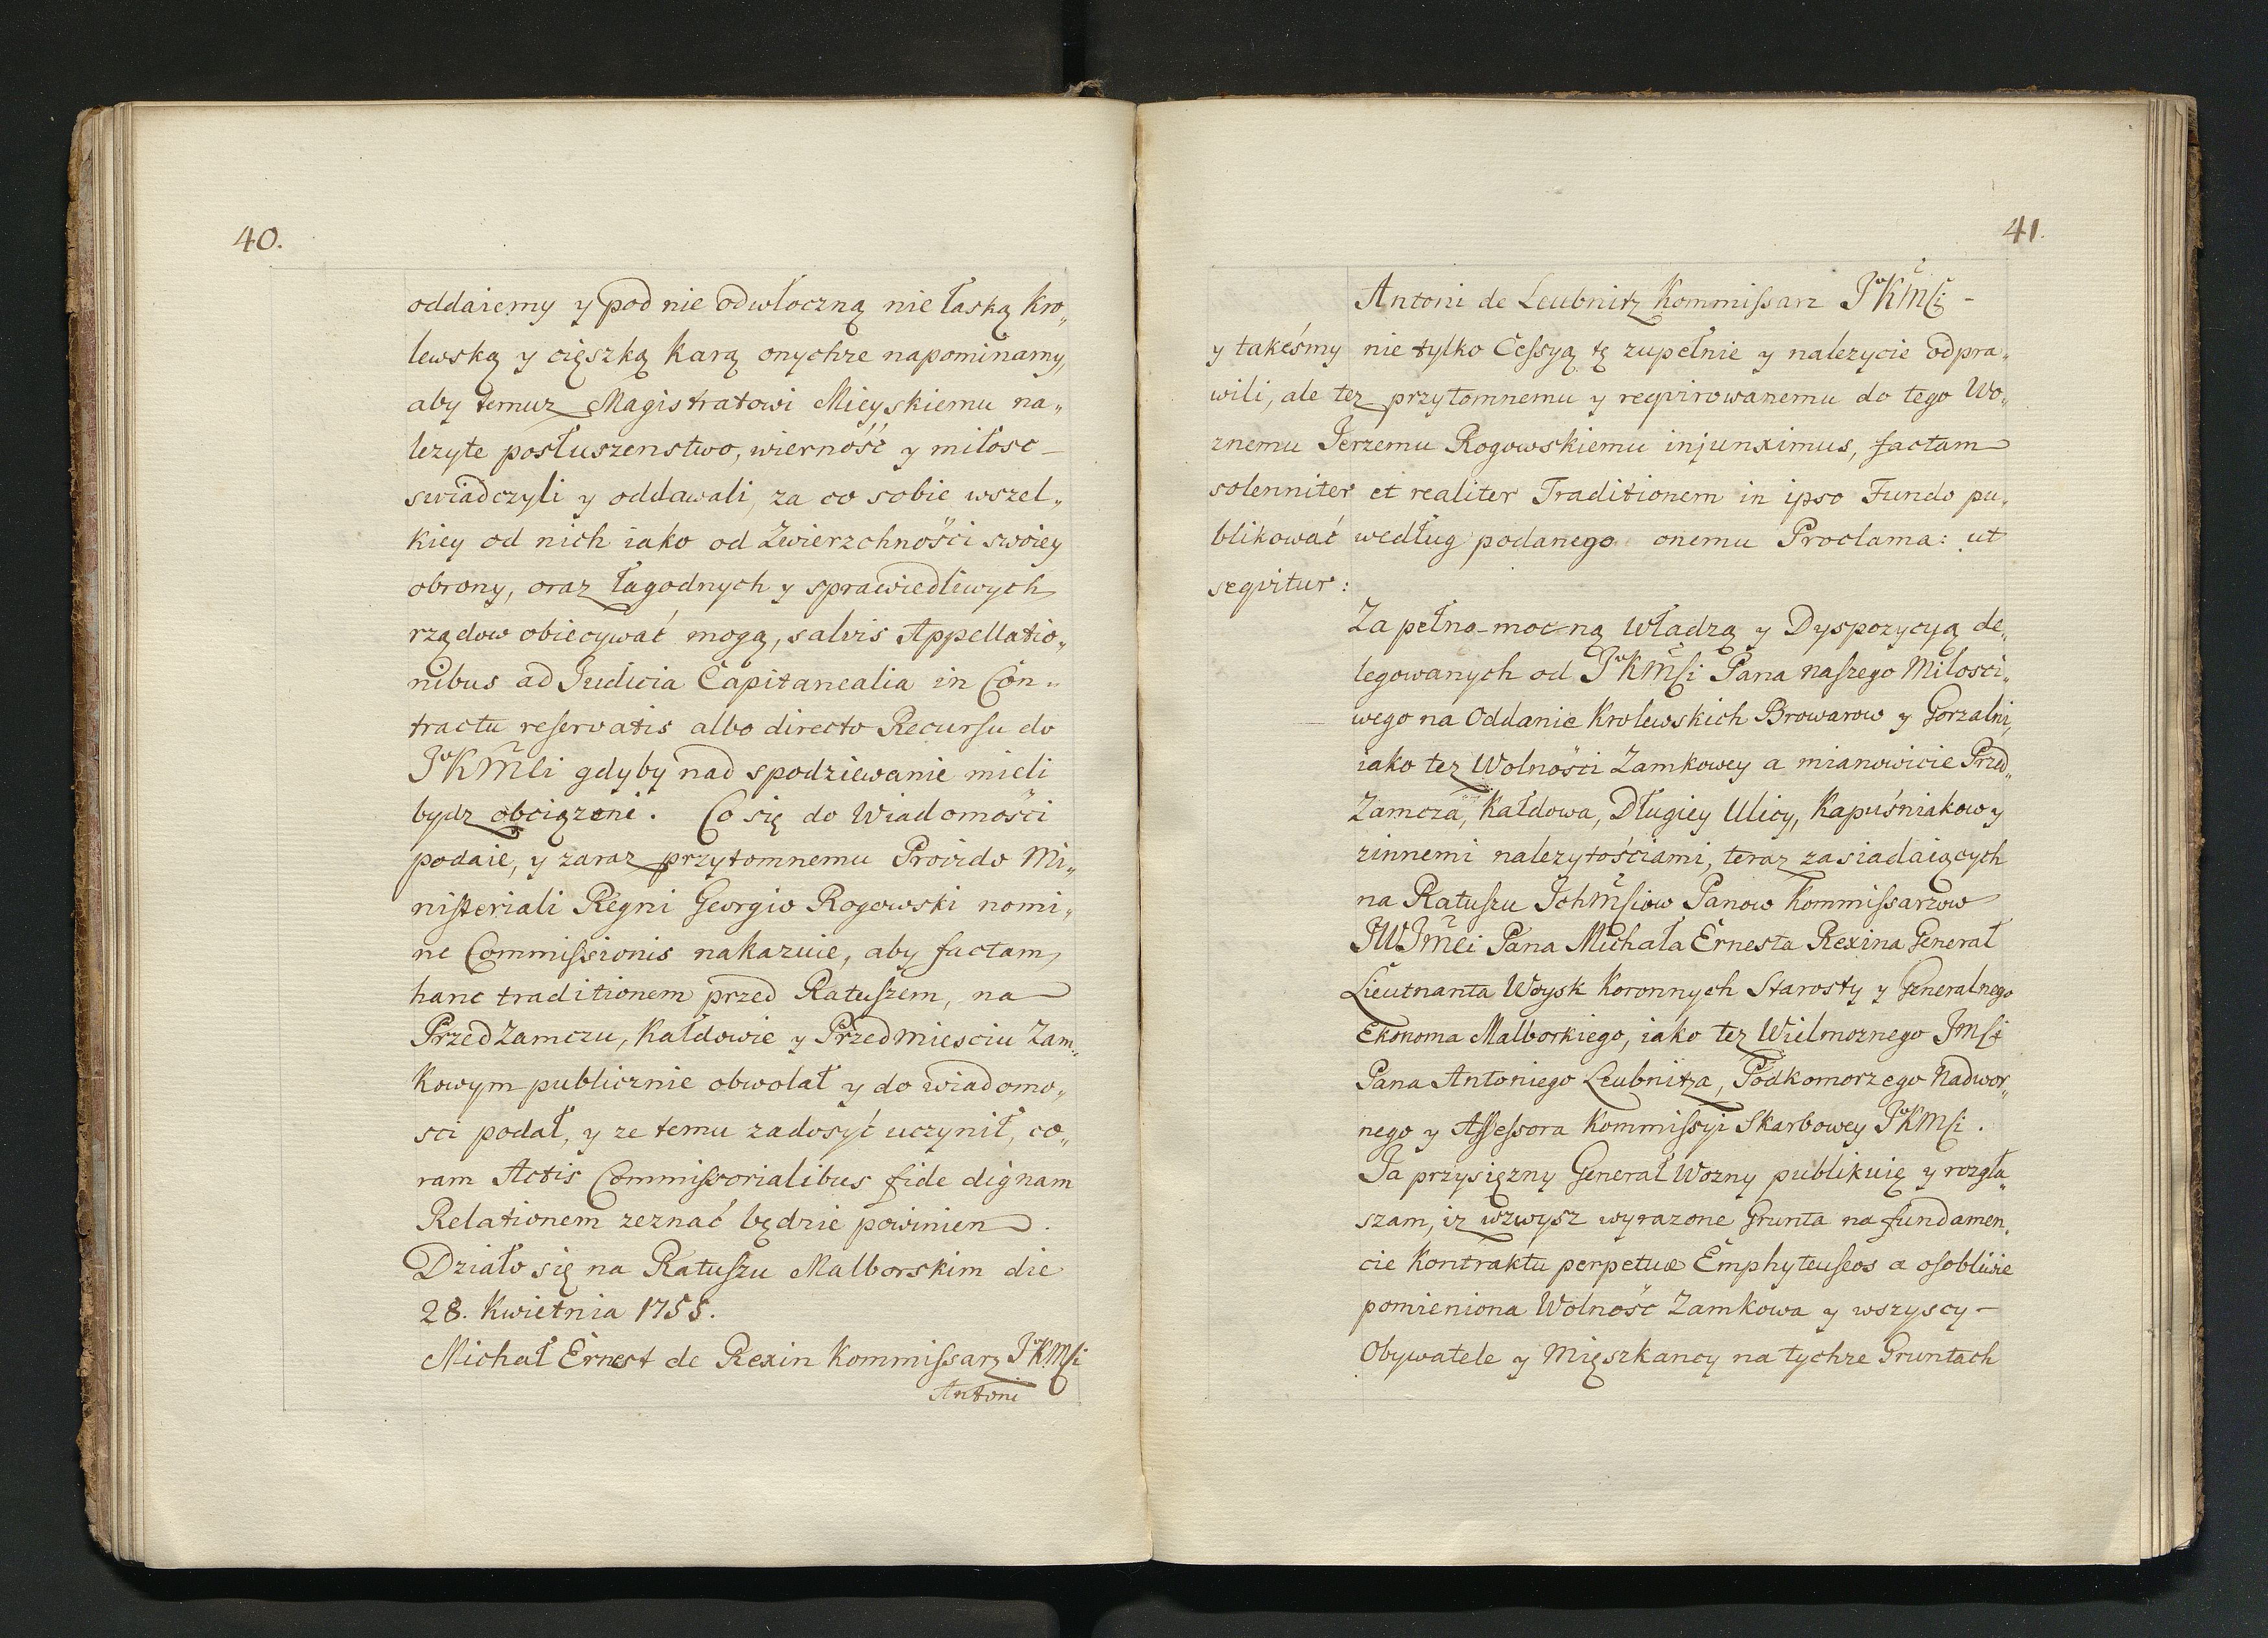 40.
oddaiemy y pod nie odwłoczną nie łaską Kro„
lewską y cięszką Karą onychze napominamy,
aby temuz Magistratowi Mieyskiemu na„
lezyte posłuszenstwo, wierność y miłosc –
swiadczyli y oddawali, za co sobie wszel„
kiey od nich iako od Zwierzchności swoiey
obrony, oraz łagodnych y sprawiedliwych
rządow obiecywać mogą, salvis Appellatio„
nibus ad Judicia Capitanealia in Con„
tractu reservatis albo directo Recursu do
JoKMci gdyby nad spodziewanie mieli
bydz obciązeni. Co się do Wiadomości
podaie, y zaraz przytomnemu Provido Mi„
nisteriali Regni Georgio Rogowski nomi„
ne Commissionis nakazuie, aby factam
hanc traditionem przed Ratuszem, na
PrzedZamczu, Kałdowie y Przedmiesciu Zam„
kowym publicznie obwolał y do wiadomo„
sci podał, y ze temu zadosyć uczynił, co„
ram Actis Commissorialibus fide dignam
Relationem zeznać będzie powinien.
Działo się na Ratuszu Malborskim die
28. Kwietnia 1755.
Michał Ernest de Rexin Kommissarz JoKMsi
Antoni
41.
Antoni de Leubnitz Kommissarz JoKMsi –
y takeśmy nie tylko Cessyą tę zupełnie y nalezycie odpra„
wili, ale tez przytomnemu y reqvirowanemu do tego Wo„
znemu Jerzemu Rogowskiemu injunximus, factam
solenniter et realiter Traditionem in ipso Fundo pu„
blikować według podanego onemu Proclama: ut
seqvitur:
Za pełno-mocną Władzą y Dyspozycyą de„
legowanych od JoKMsi Pana naszego Milosci„
wego na Oddanie Krolewskich Browarow y Gorzalni,
iako tez Wolności Zamkowey a mianowicie Przed„
Zamcza, Kałdowa, Długiey Ulicy, Kapuśniakow y
zinnemi nalezytościami, teraz zasiadaiących
na Ratuszu IchMsiow Panow Kommissarzow
JWJmci Pana Michała Ernesta Rexina Generał
Lieutnanta Woysk Koronnych Starosty y Generalnego
Ekonoma Malborkiego, iako tez Wielmoznego Jmsi
Pana Antoniego Leubnitza, Podkomorzego Nadwor„
nego y Assessora Kommissyi Skarbowey JoKMsi.
Ja przysięzny Generał Wozny publikuię y rozgła„
szam, iz wzwysz wyrazone Grunta na fundamen„
cie Kontraktu perpetuæ Emphyteuseos a osobliwie
pomieniona Wolność Zamkowa y wszyscy –
Obywatele y Mięszkancy na tychze Gruntach